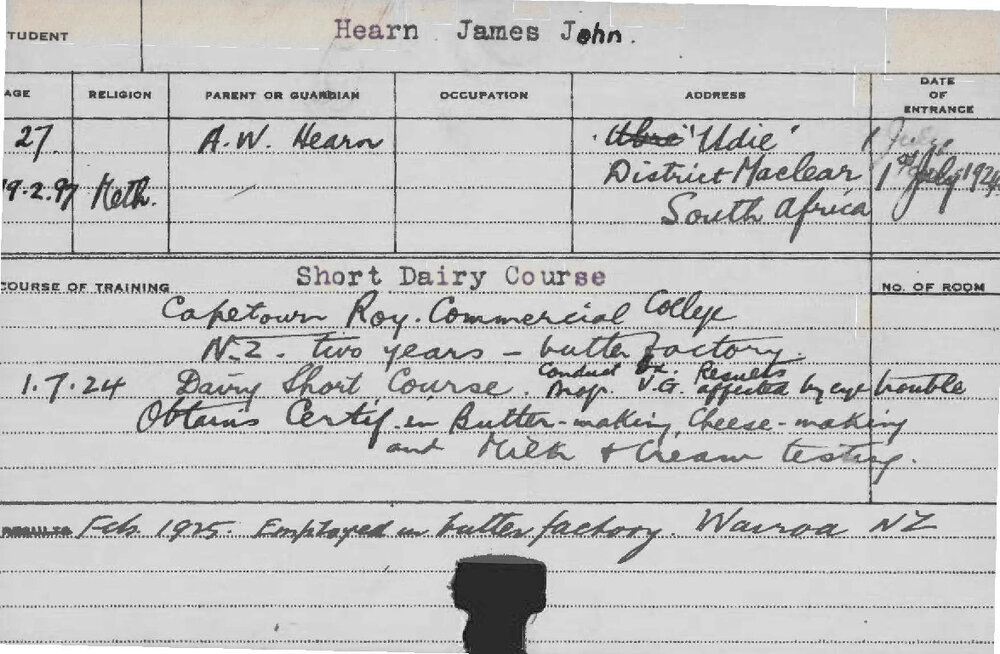 TUDENT Hearn James John.
AGE RELIGION PARENT OR GUARDIAN OCCUPATION ADDRESS DATE OF ENTRANCE
27. A.W. Hearn "Udie" 1 July
19.2.97 Meth. District Maclear 1st July 1924
South Africa
COURSE OF TRAINING Short Dairy Course NO. OF ROOM
Capetown Roy. Commercial College
N.Z. two years - butter factory.
1.7.24 Dairy Short Course. Conduct Ex. Results
Prop. V.G. affected by eye trouble
Obtains Certif. in Butter-making, Cheese-making
and Milk & Cream testing.
RESULTS Feb. 1925. Employed in butter factory. Wairoa NZ